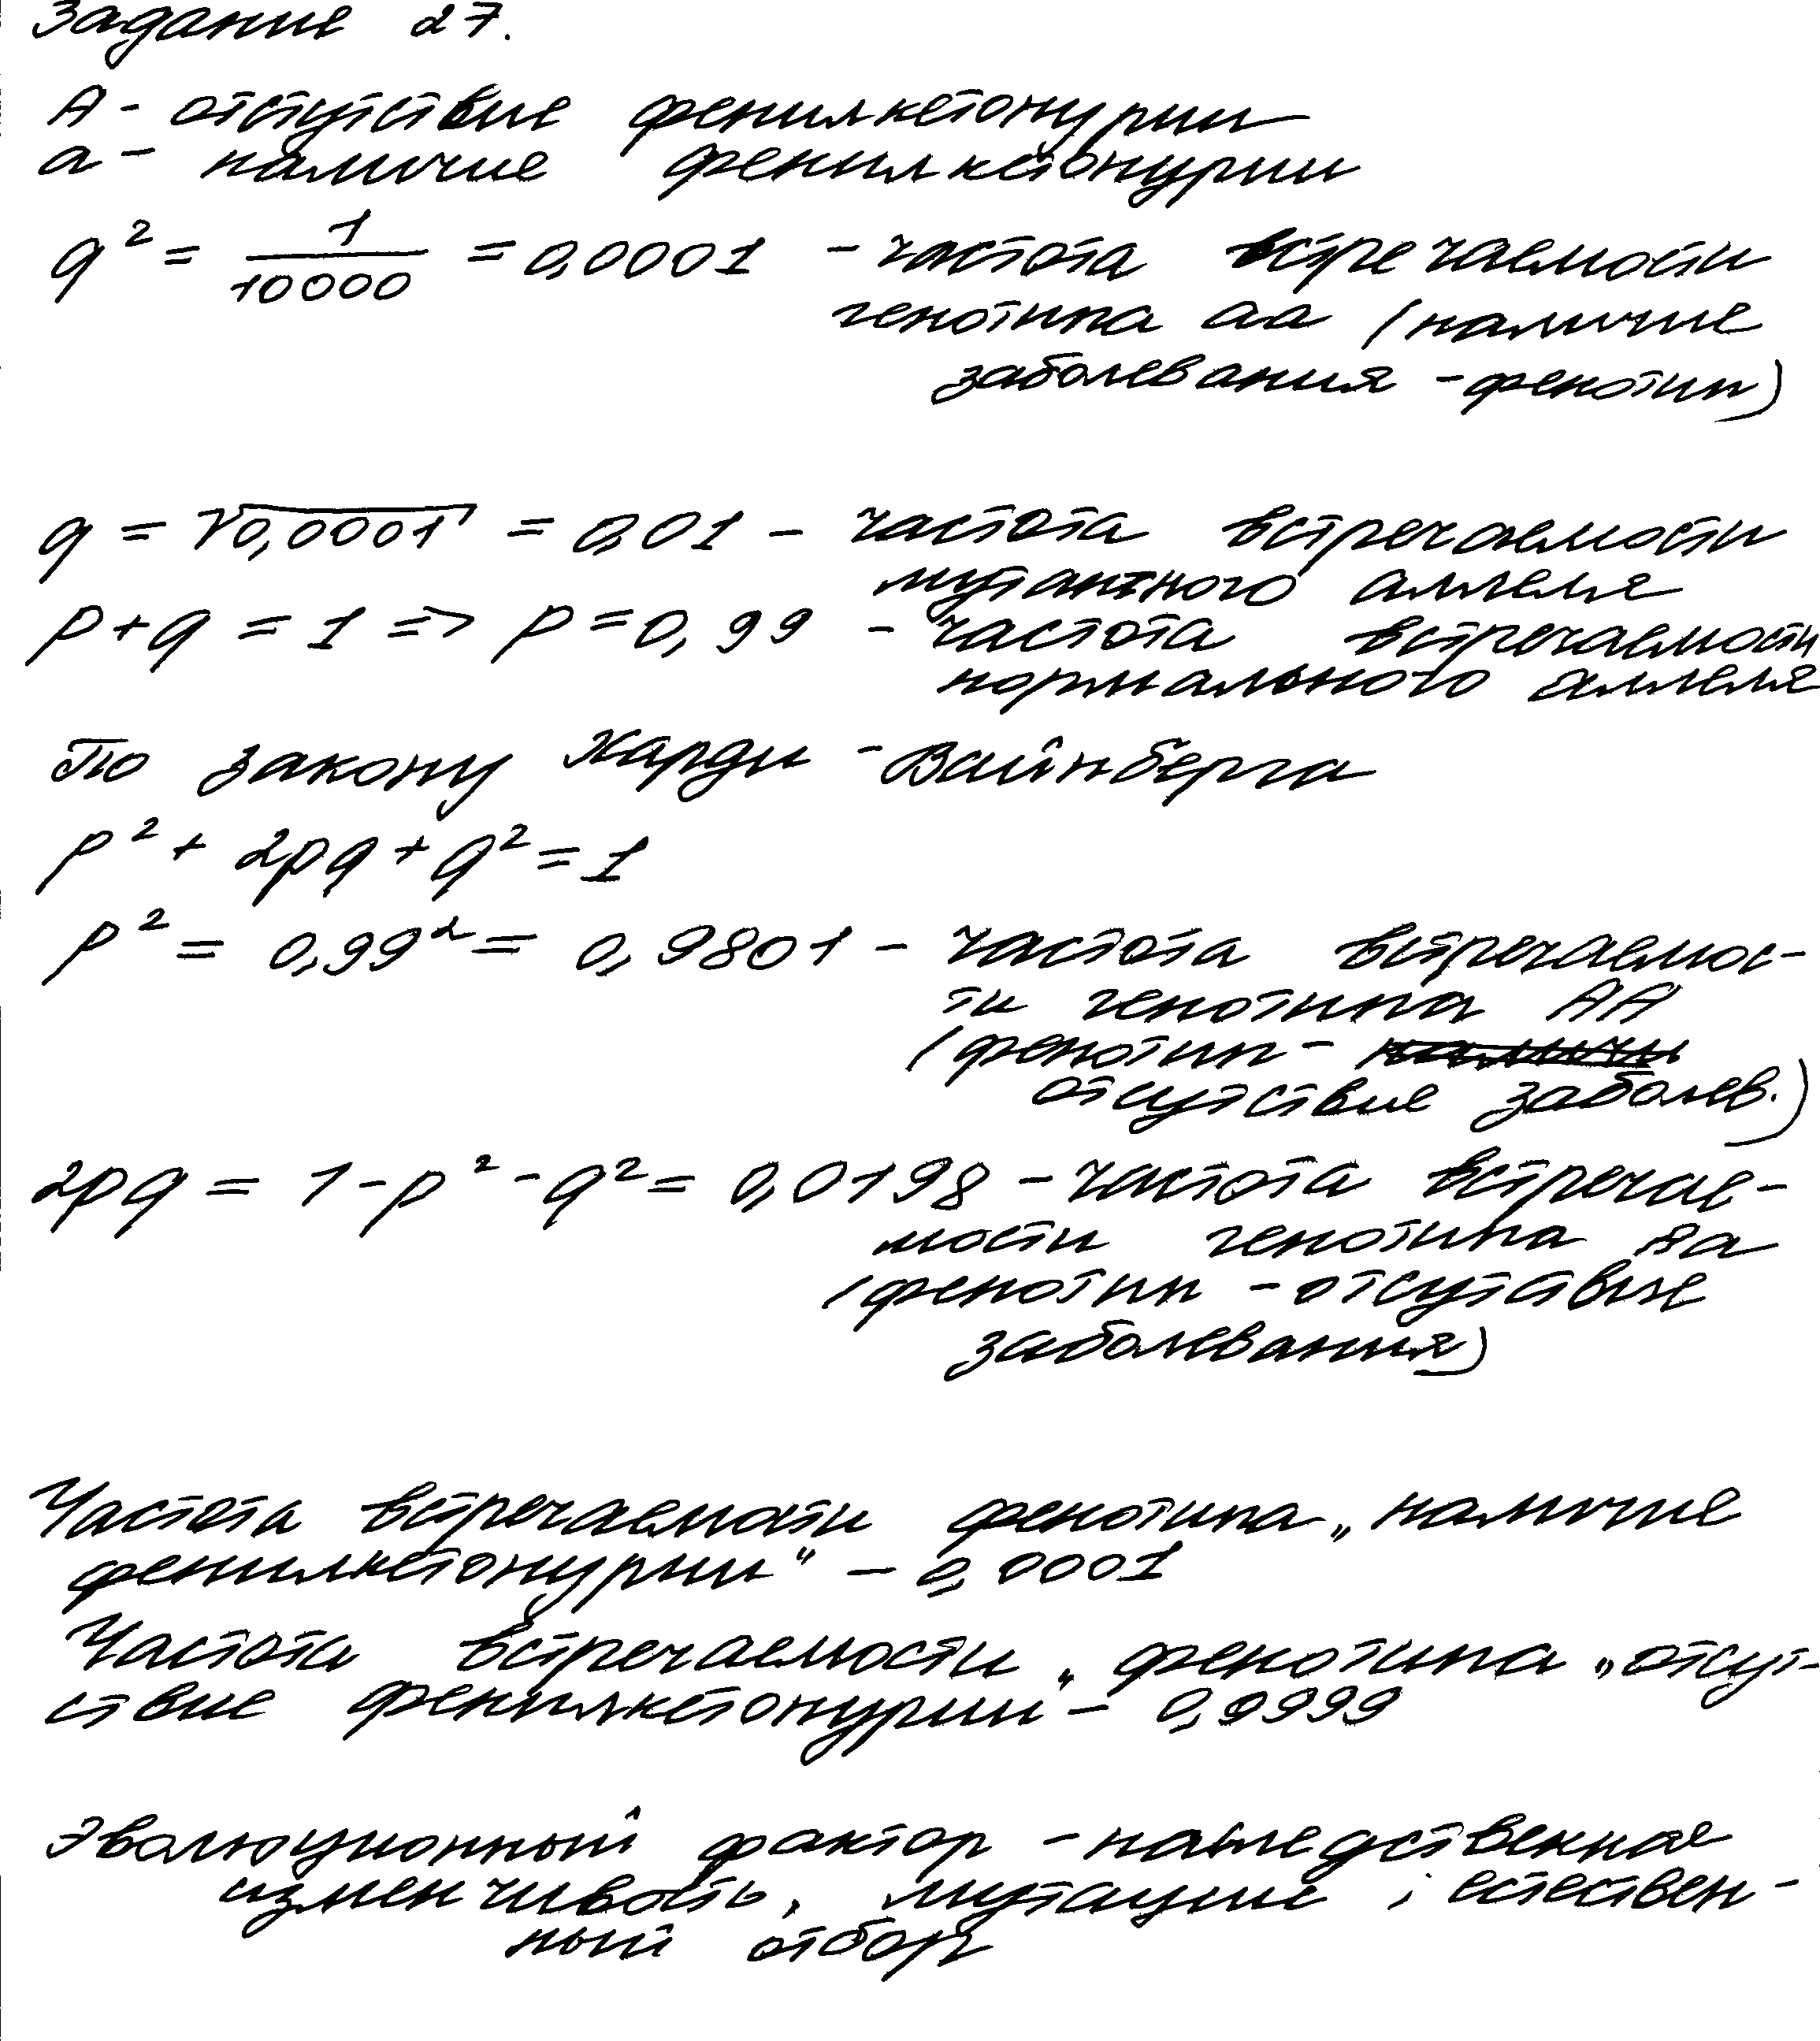 Задание 27.
A - отсутствие фенилкетонурии
a - наличие фенилкетонурии
q² = 1/10000 = 0,0001 - частота встречаемости
генотипа aa (наличие
заболевания - фенотип)
q = √0,0001 = 0,01 - частота встречаемости
мутантного аллеля
p+q = 1 => p = 0,99 - частота встречаемости
нормального аллеля
По закону Харди - Вайнберга
p² + 2pq + q² = 1
p² = 0,99² = 0,9801 - частота встречаемос-
ти генотипа AA
(фенотип -
отсутствие заболев.)
2pq = 1 - p² - q² = 0,0198 - частота встречае-
мости генотипа Aa
(фенотип - отсутствие
заболевания)
Частота встречаемости фенотипа „наличие
фенилкетонурии“ - 0,0001
Частота встречаемости „фенотипа „отсут-
ствие фенилкетонурии“ - 0,9999
Эволюционный фактор - наследственная
изменчивость, мутации, естествен-
ный отбор